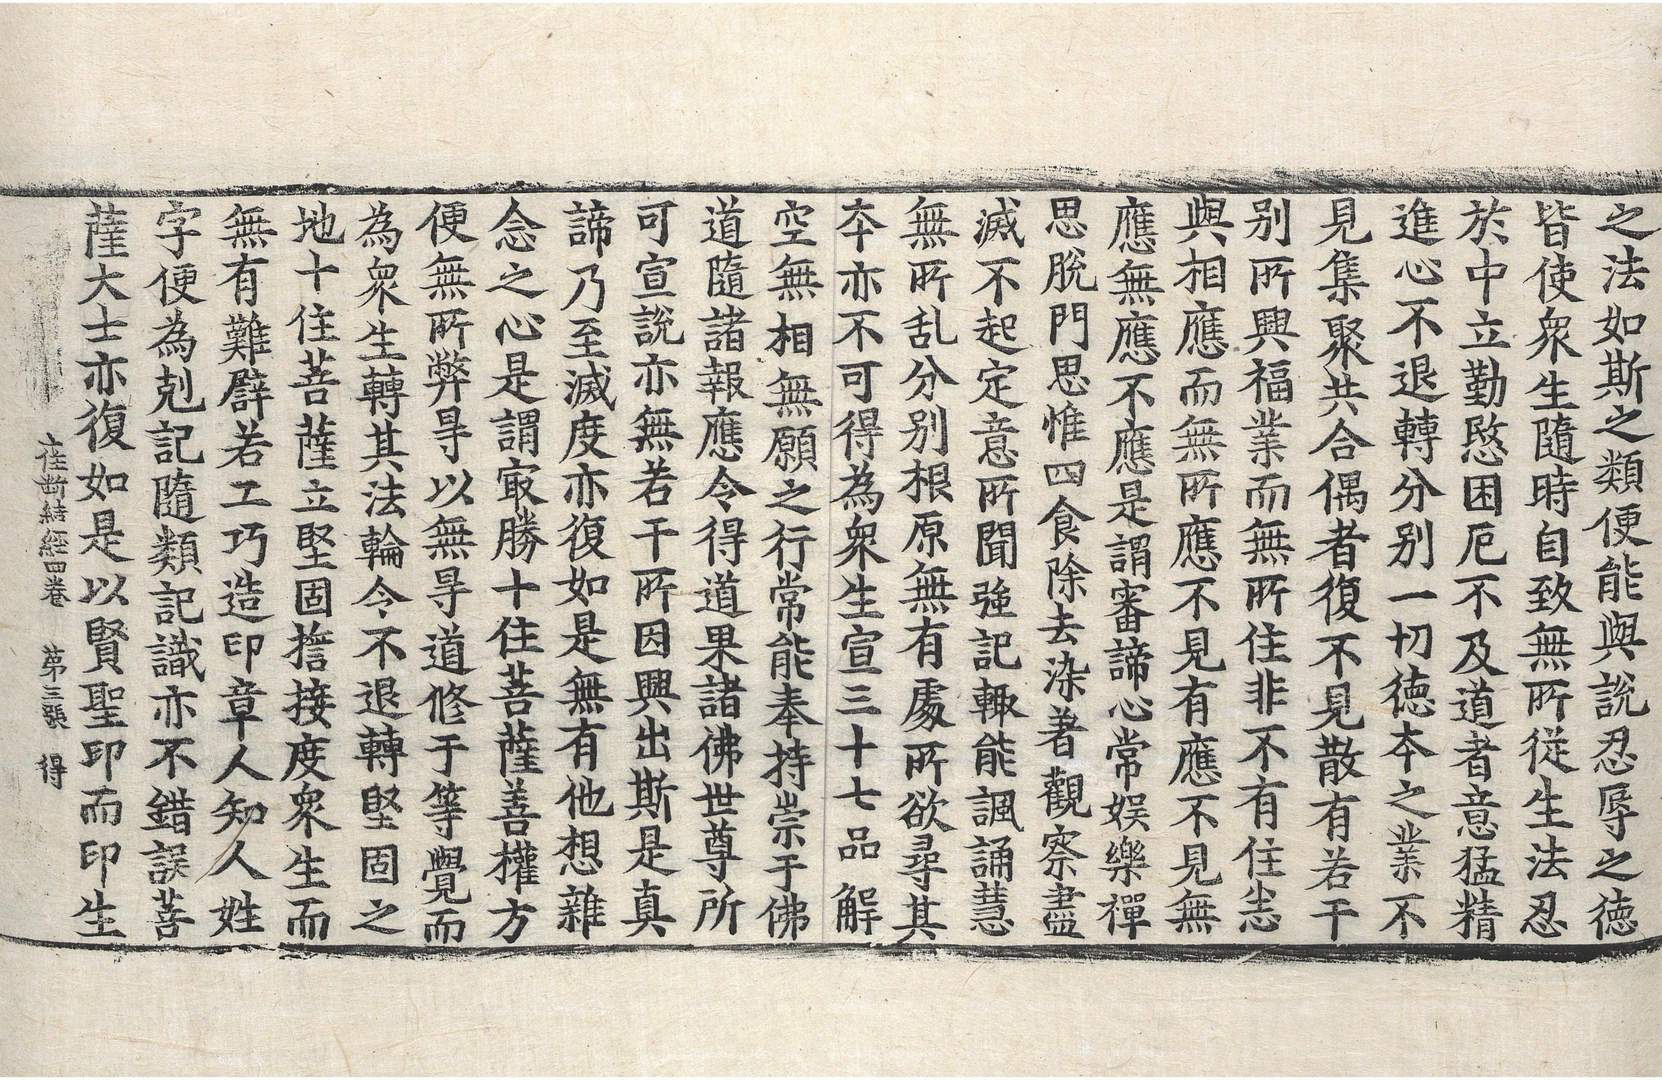 之法如斯之類便能與說忍辱之德
皆使衆生隨時自致無所從生法忍
於中立勤愍困厄不及道者意猛精
進心不退轉分別一切德本之業不
見集聚共合偶者復不見散有若干
別所興福業而無所住非不有住恙
與相應而無所應不見有應不見無
應無應不應是謂審諦心常娛樂禪
思脫門思惟四食除去染著觀察盡
滅不起定意所聞強記輙能諷誦慧
無所乱分別根原無有處所欲尋其
本亦不可得為衆生宣三十七品解
空無相無願之行常能奉持崇于佛
道隨諸報應令得道果諸佛世尊所
可宣說亦無若干所因興出斯是真
諦乃至滅度亦復如是無有他想雜
念之心是謂㝡勝十住菩薩善權方
便無所弊㝵以無㝵道修于等覺而
為衆生轉其法輪令不退轉堅固之
地十住菩薩立堅固擔接度衆生而
無有難譬若工巧造印章人知人姓
字便為剋記隨類記識亦不錯誤菩
薩大士亦復如是以賢聖印而印生
十住断結經四卷 第三張 得